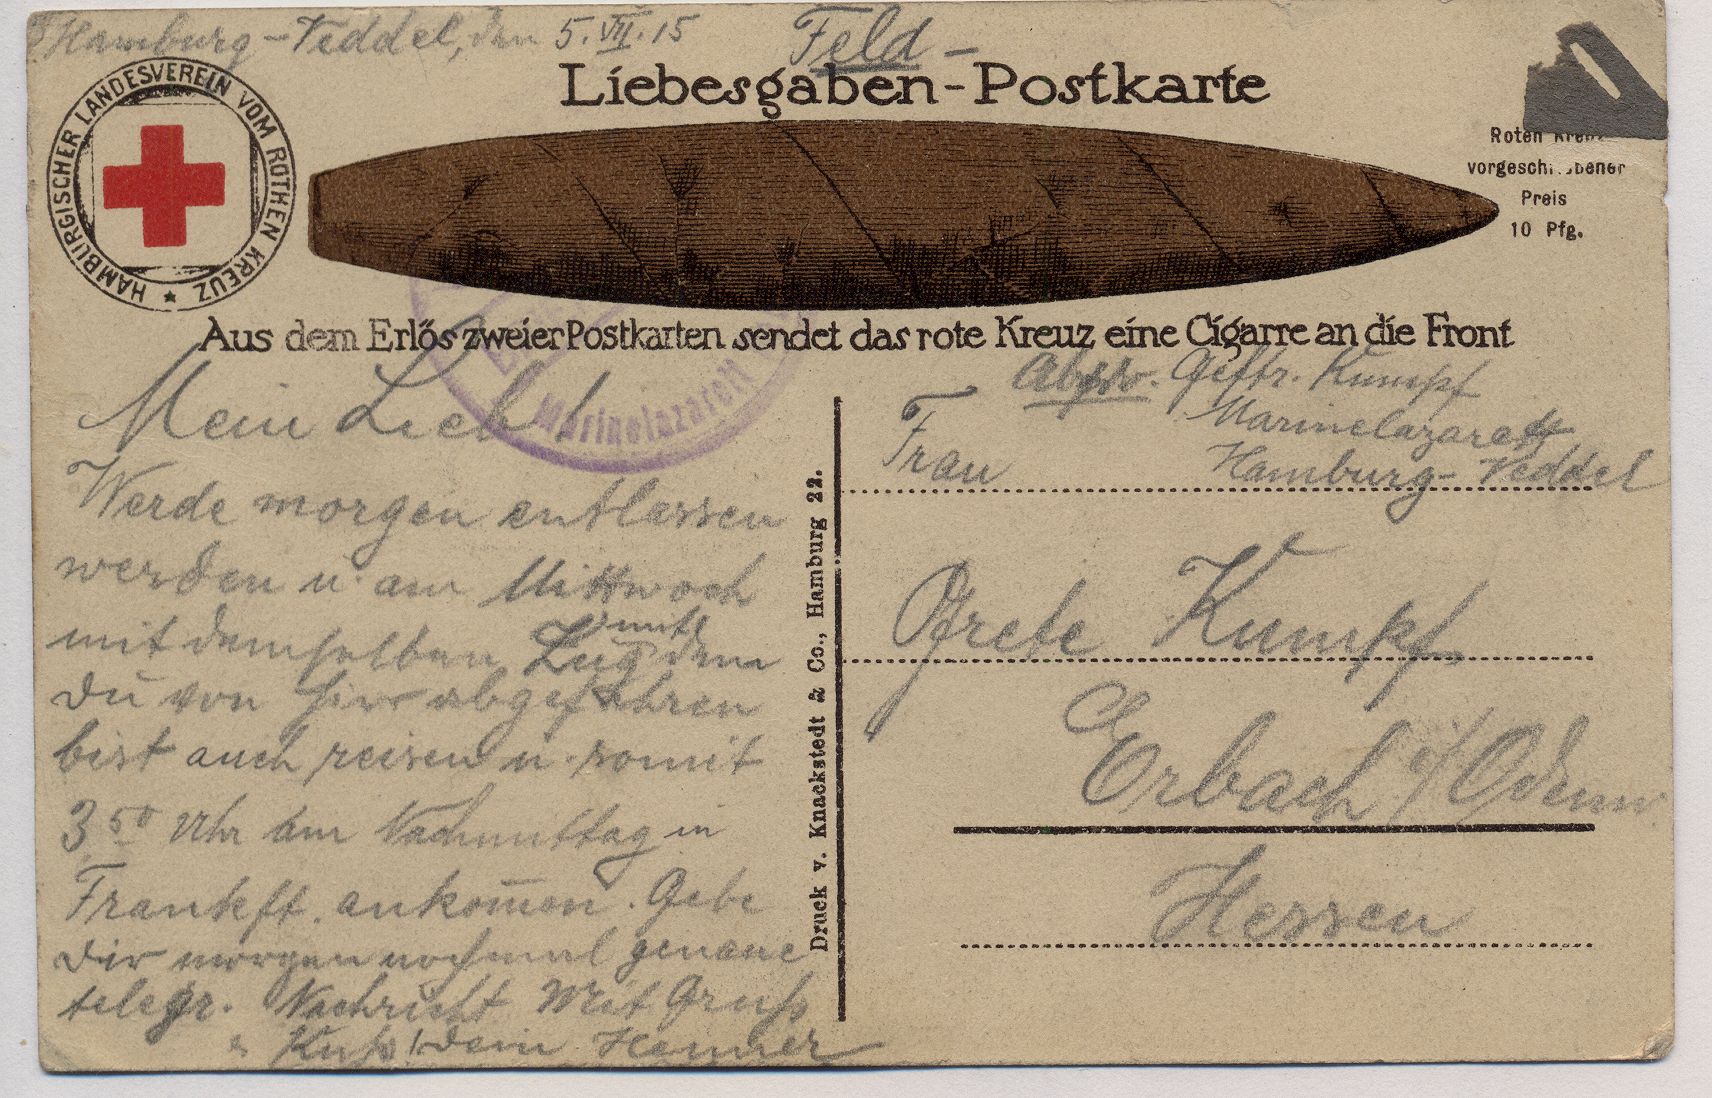 Hamburg-Veddel, den 5. VII. 15
Feld-
Liebesgaben-Postkarte
HAMBURGISCHER LANDESVEREIN VOM ROTHEN KREUZ ★
Roten Kreuz
vorgeschriebener
Preis
10 Pfg.
Aus dem Erlös zweier Postkarten sendet das rote Kreuz eine Cigarre an die Front
Marinelazarett
Mein Lieb!
Werde morgen entlassen
werden u. am Mittwoch
mit demselben Zug mit dem
Du von hier abgefahren
bist auch reisen u. somit
3 50 Uhr am Nachmittag in
Frankft. ankom̄en. Gebe
Dir morgen nochmal genaue
telegr. Nachricht Mit Gruß
u Kuß! Dein Henner
Druck v. Knackstedt & Co., Hamburg 22.
Absdr. Geftr. Kumpf
Marinelazarett
Hamburg-Veddel
Frau
Grete Kumpf
Erbach i/Odenw.
Hessen